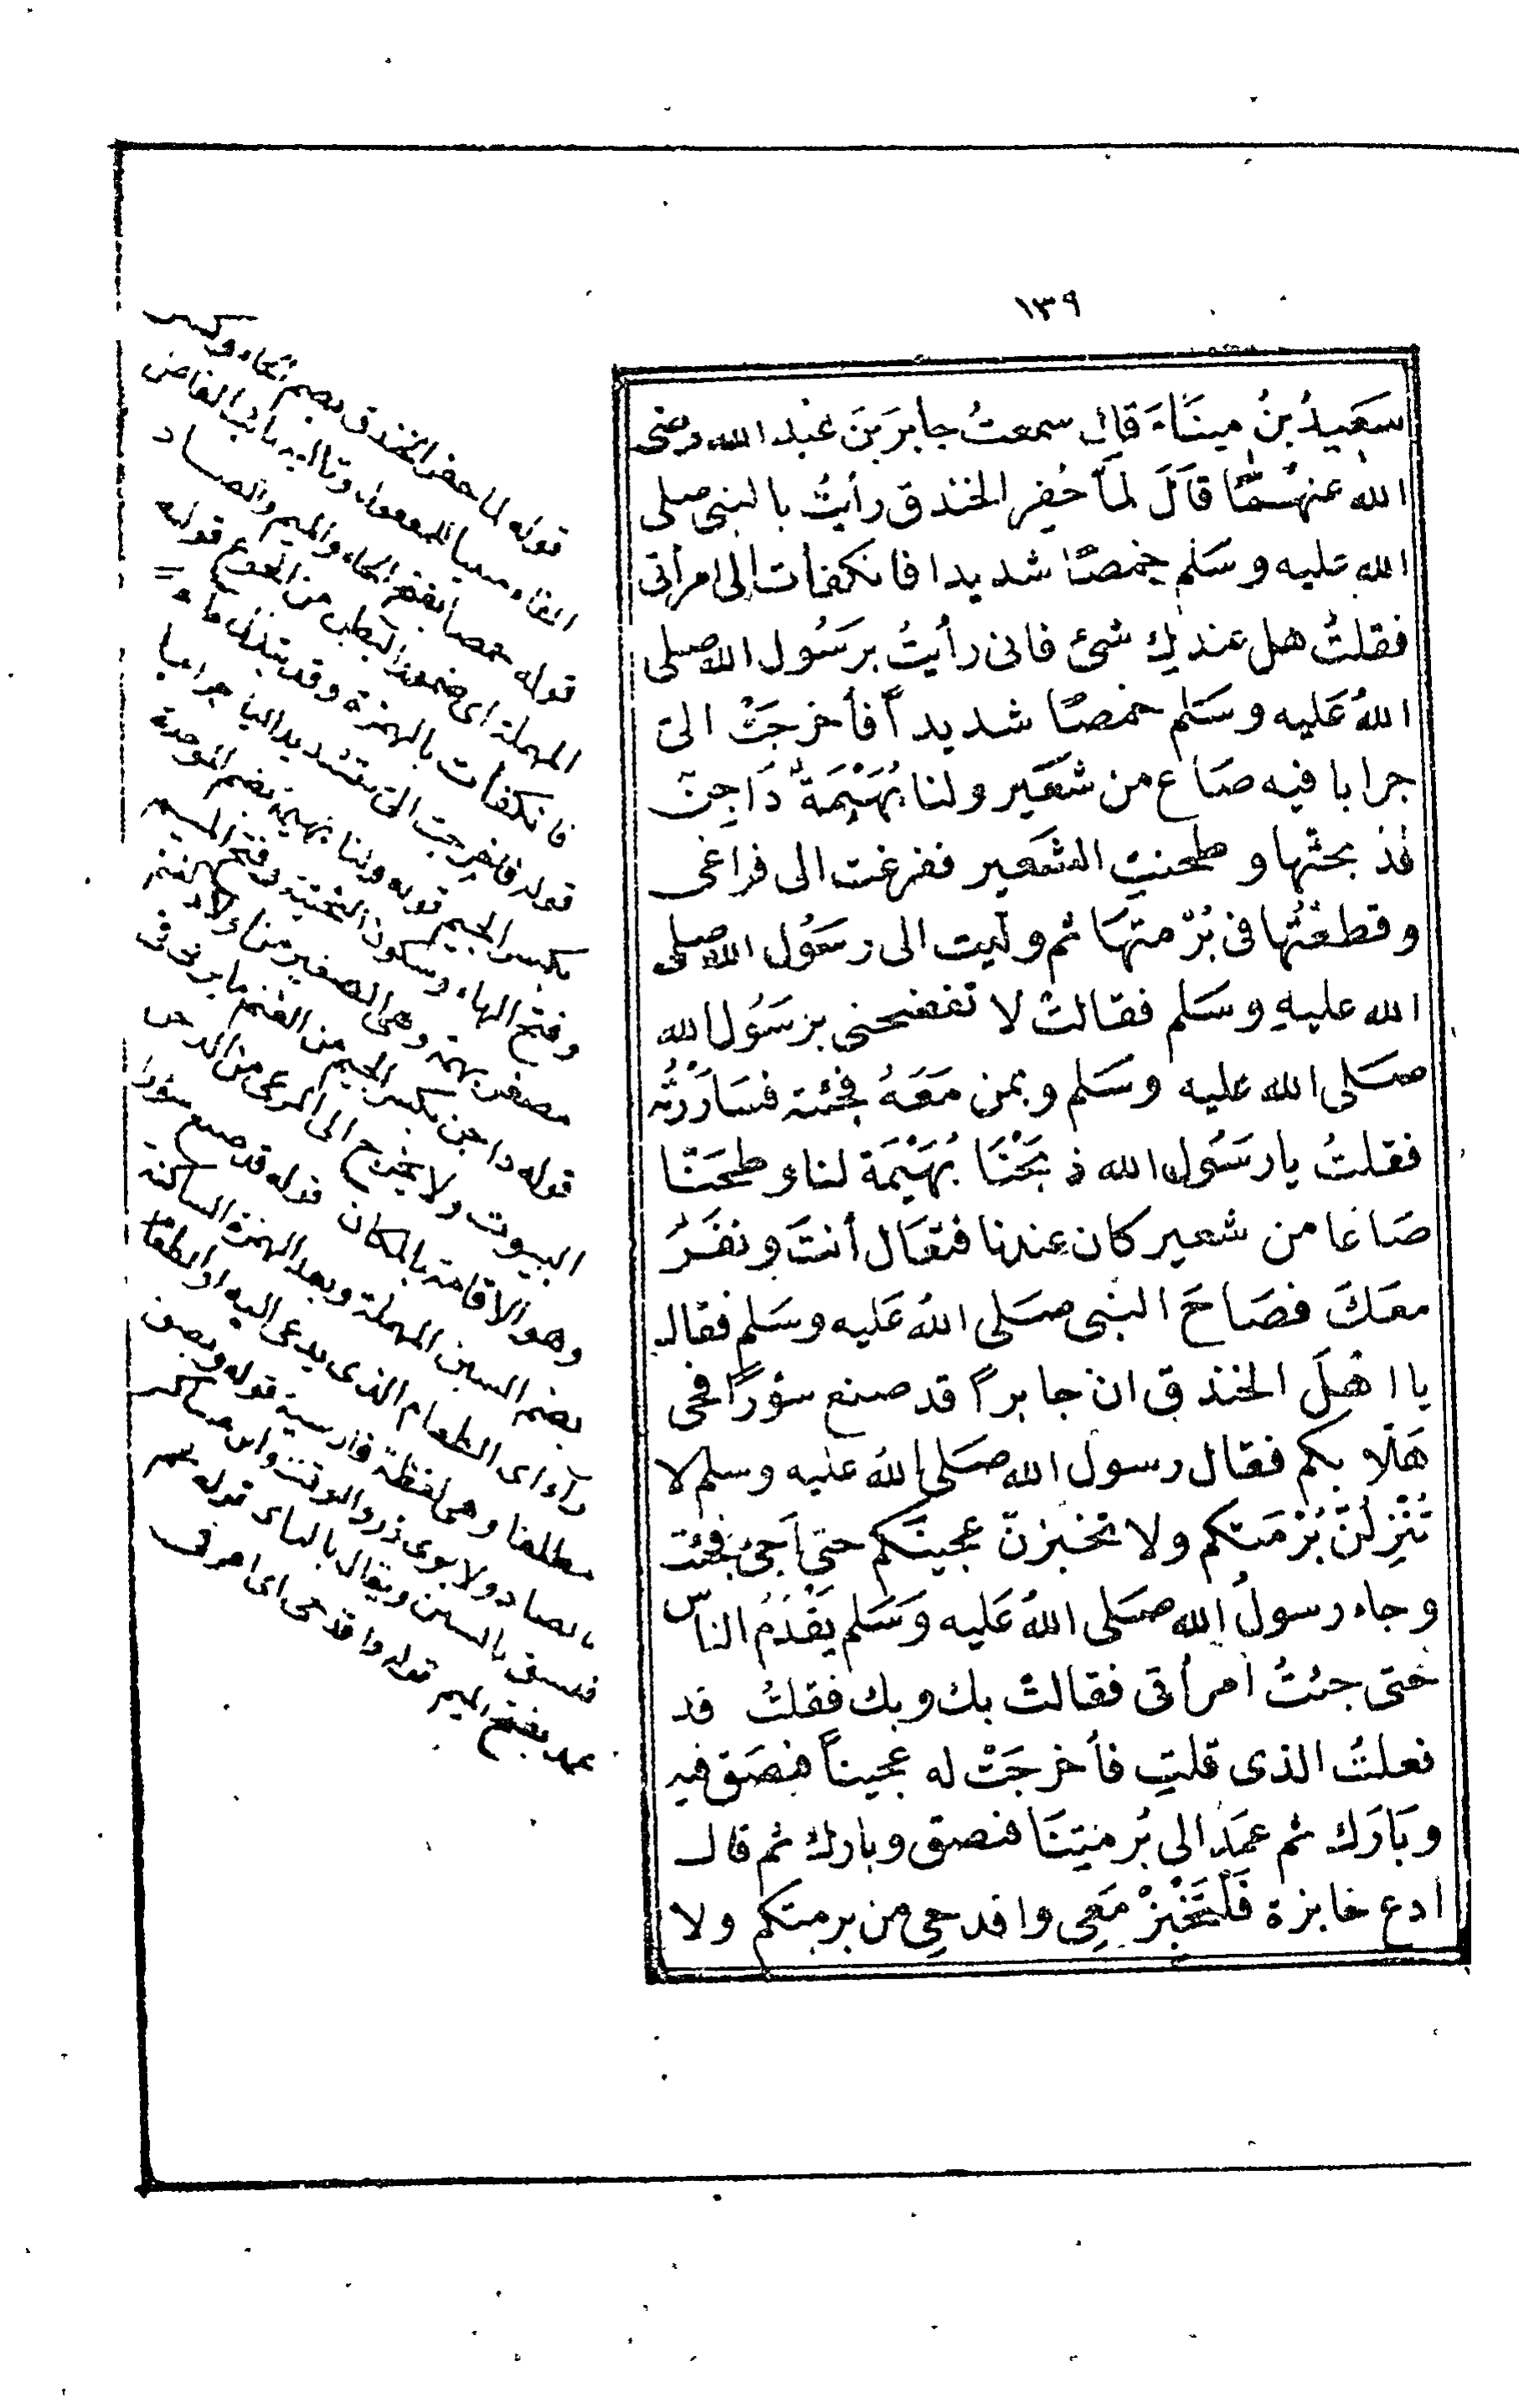 ١٣٩
سَعِيدُ بنُ مِينَاءَ قال سمعتُ جابرَ بنَ عَبد الله رضى
الله عنهُمَا قَالَ لمَّا حُفِر الخندق رأيتُ بالنبى صلى
الله عليه وسَلم خمصًا شديدا فانكفأت الى امرأتى
فقلتُ هل عندكِ شئ فانى رأيتُ برسُول الله صلى
اللهُ عَليه وسَلم خمصًا شديداً فأخرجَتْ الىّ
جرابا فيه صَاع من شَعَير ولنا بُهَيْمَةٌ دَاجِنٌ
فذبحتُها وطحنتِ الشَعير ففرغت الى فراغى
وقطعْتُها فى بُرْمتهَا ثم وليت الى رسَوُل الله صلى
الله عليهِ وسَلم فقالتْ لا تفضحنى برَسُول الله
صَلى الله عليه وسَلم وبمن مَعَهُ فجئته فسَارَرْتُه
فقلتُ يارسَوُل الله ذبَحْنَا بُهَيْمَة لنا وطحَنّا
صَاعا من شعير كان عِندنا فتعَال أنتَ ونفَرٌ
معَكَ فصَاحَ النبى صَلى اللهُ عَليه وسَلم فقال
يا اهْلَ الخندق ان جابراً قد صنع سؤرًا فحى
هَلًا بكم فقال رسول الله صَلى اللهُ عليه وسلم لا
تُنْزِلُنَّ بُرْمَتكم ولا تخبزنّ عجينَكم حتى أجئ فجئت
وجاء رسولُ الله صَلى اللهُ عَليه وَسَلم يَقْدُمُ الناس
حَتى جئتُ امرأتى فقالتْ بك وبك فقلتُ قد
فعلتُ الذى قلتِ فأخرجَتْ له عجيناً فبصَق فيه
وبَارَك ثم عمَدَ الى بُرمَتِنَا فبصق وبارك ثم قال
ادع خابزة فَلْتَخْبِزْ مَعِى واقدحِى من برمتكم ولا
قوله لما حفر الخندق بضم الحاء وكسر
الفاء مبنيا للمفعول وتاليه نائب الفاعل
قوله خمصا بفتح الحاء والميم والصاد
المهملة اى ضمور البطن من الجوع قوله
فانكفأت بالهمزة وقد تبدل ها
قوله فاخرجت الىّ بتشديد اليا جرابا
بكسر الجيم قوله ولنا بهيمة بضم الموحدة
وفتح الهاء وسكون التحتية وفتح الميم
مصغر بهمة وهى الصغير من اولاد الغنم
قوله داجن بكسر الجيم من الغنم ما يربى فى
البيوت ولا يخرج الى المرعى من الدجن
وهو الاقامة بالمكان قوله قد صنع سؤرا
بضم السين المهملة وبعد الهمزة الساكنة
رآء اى الطعام الذى يدعى اليه او الطعام
مطلقا وهى لفظة فارسية قوله وبصق
بالصاد ولابوى ذر والوقت وابن عساكر
فبسق بالسين ويقال بالزاى قوله ثم
عمد بفتح الميم قوله واقدحى اى اغرفى